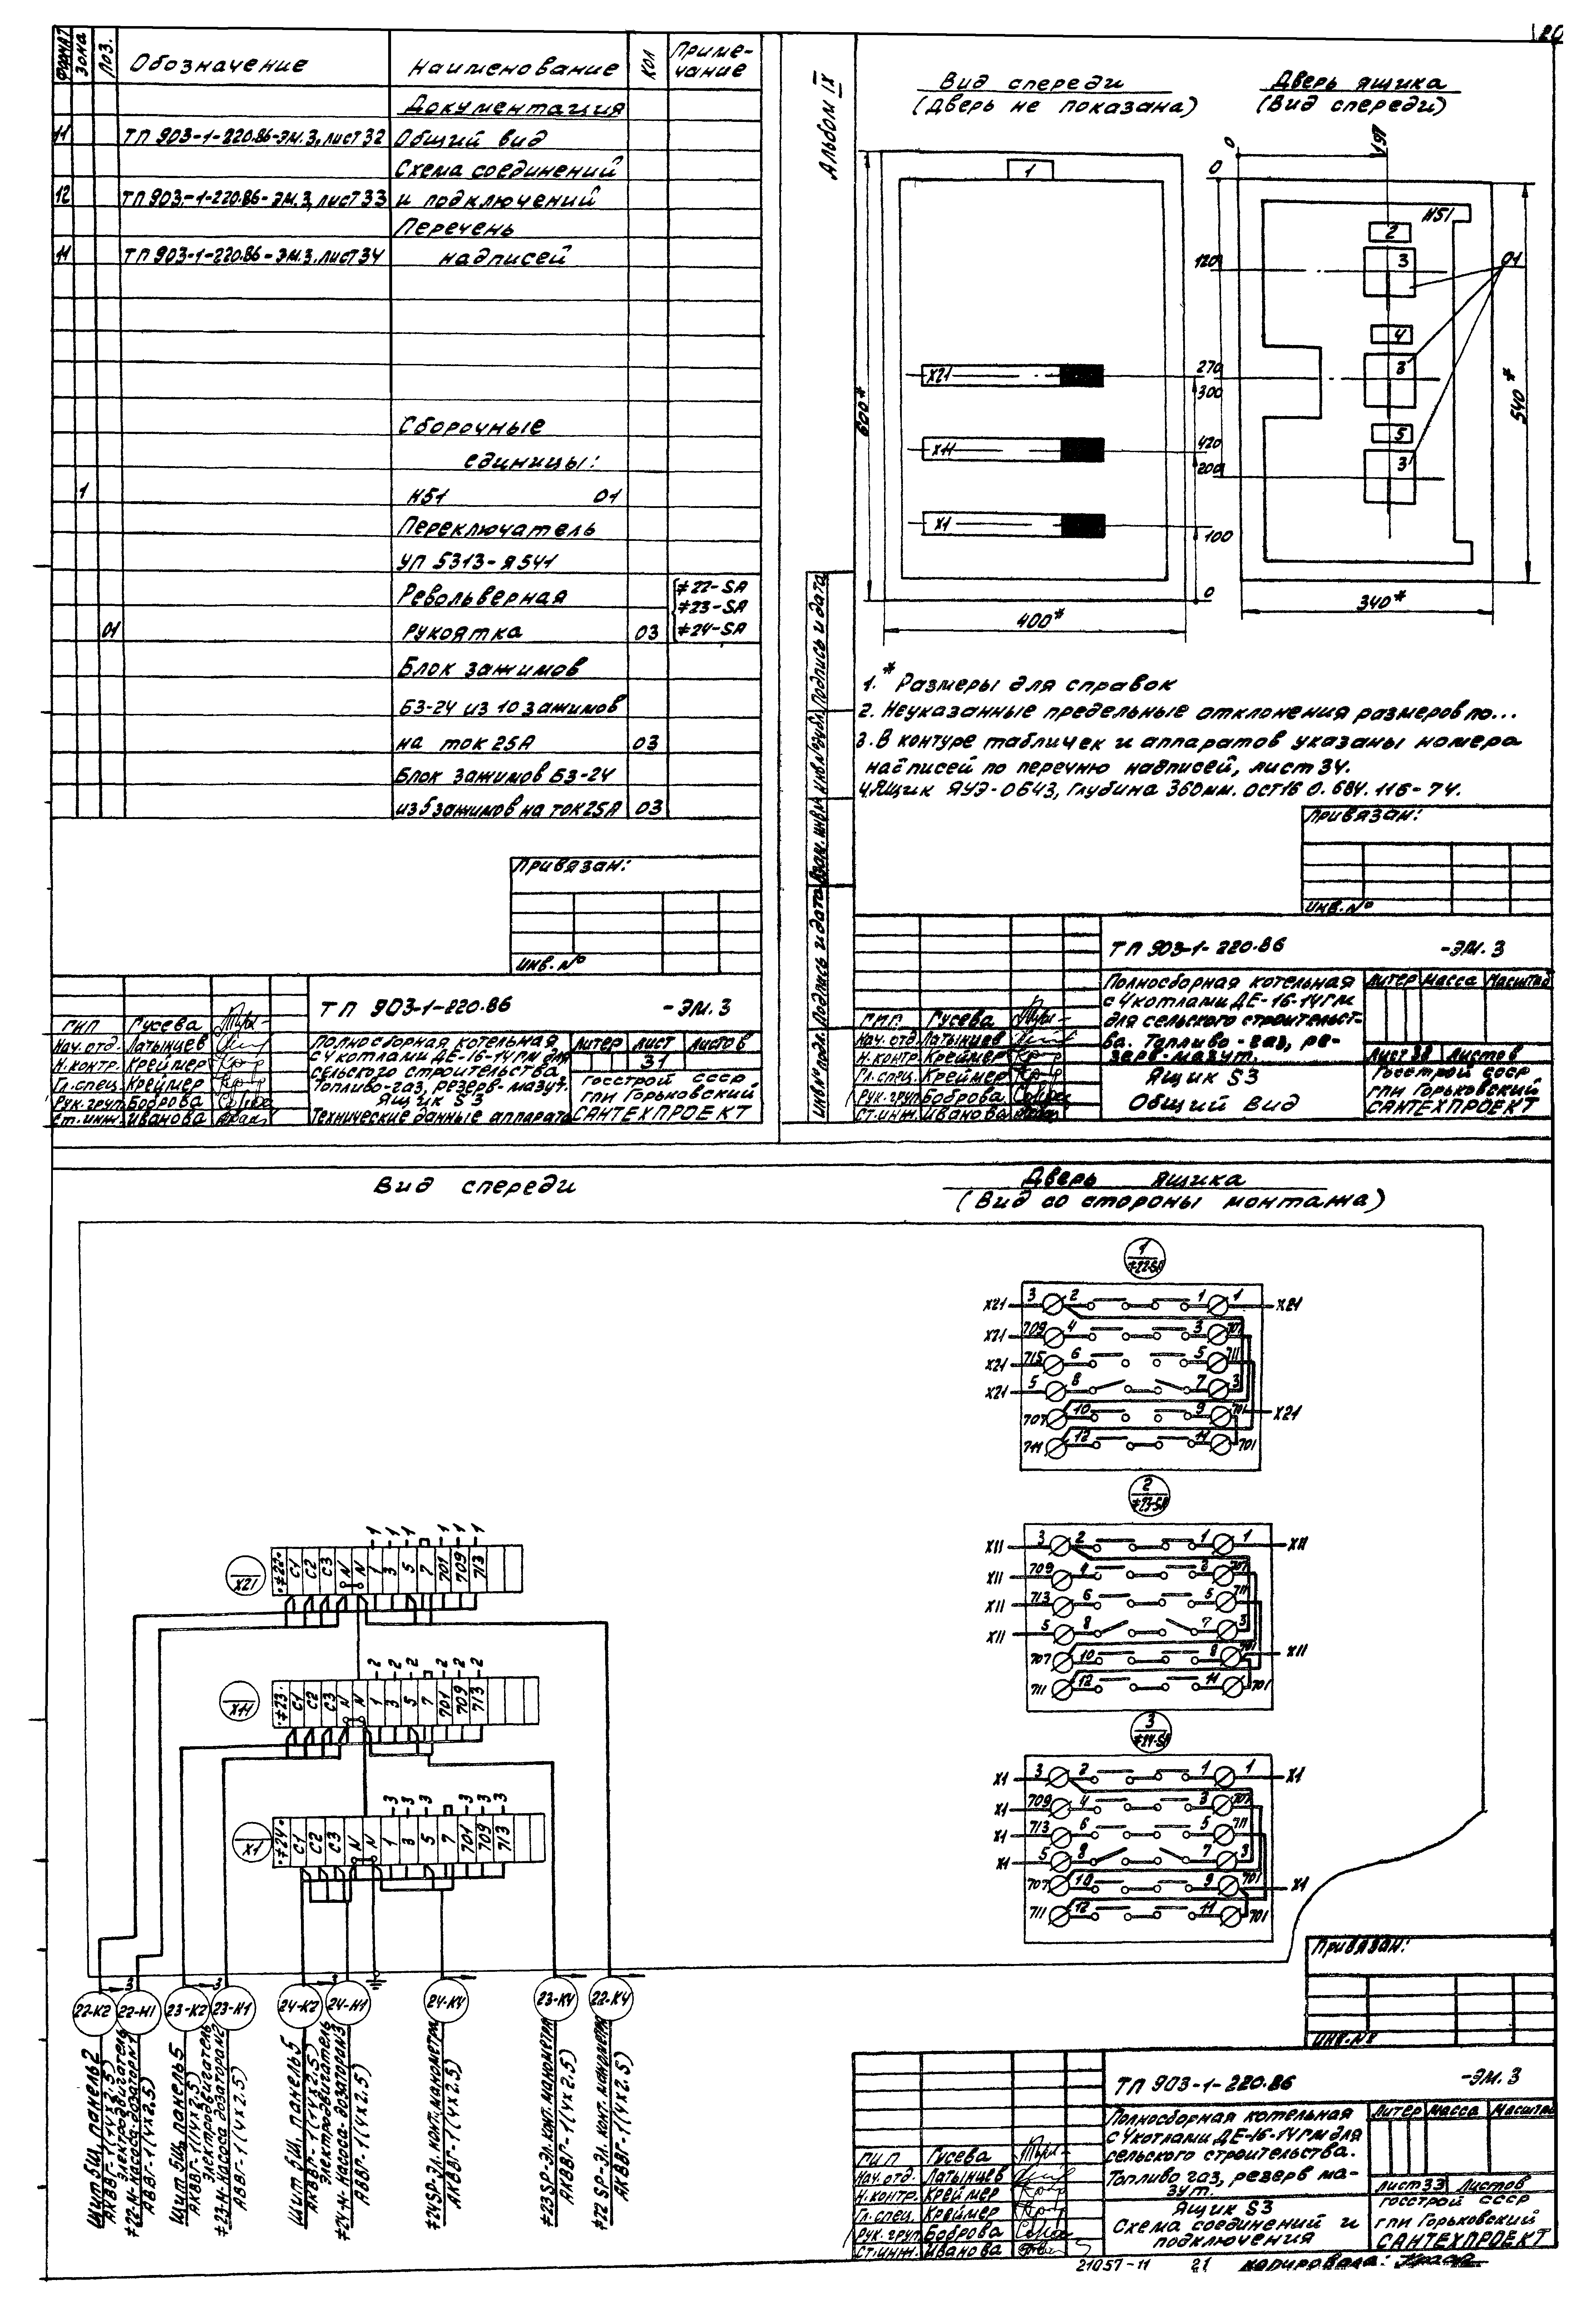 20
Формат
Зона
Поз.
Обозначение
Наименование
Кол
Приме-
чание
Документация
11 ТП 903-1-220.86-ЭМ.3, лист 32 Общий вид
Схема соединений
12 ТП 903-1-220.86-ЭМ.3, лист 33 и подключений
Перечень
11 ТП 903-1-220.86-ЭМ.3. лист 34 надписей
Сборочные
единицы:
1 Н51 01
Переключатель
УП 5313-Я541
Револьверная
01 рукоятка 03
≠22-SA
≠23-SA
≠24-SA
Блок зажимов
БЗ-24 из 10 зажимов
на ток 25А 03
Блок зажимов БЗ-24
из 5 зажимов на ток 25А 03
Привязан:
Инв. №
ТП 903-1-220.86 -ЭМ.3
ГИП Гусева
Нач. отд. Латынцев
Н.контр. Креймер
Гл.спец. Креймер
Рук. груп Боброва
Ст. инж. Иванова
Полносборная котельная
с 4 котлами ДЕ-16-14ГМ для
сельского строительства
Топливо-газ, резерв-мазут.
Ящик S3
Технические данные аппарата
Литер Лист Листов
31
Госстрой СССР
ГПИ Горьковский
САНТЕХПРОЕКТ
Альбом IX
Вид спереди
(Дверь не показана)
Дверь ящика
(Вид спереди)
1
Х21
Х11
Х1
600*
400*
300
200
100
0
0
0
191
120
270
420
540*
340*
Н51
2
3
4
3
5
3
01
1.* Размеры для справок
2. Неуказанные предельные отклонения размеров по...
3. В контуре табличек и аппаратов указаны номера
надписей по перечню надписей, лист 34.
4. Ящик ЯУЭ-0643, глубина 360мм. ОСТ16 0.684.116-74.
Инв № подл. Подпись и дата Взам. инв № Инв № дубл. Подпись и дата
Привязан:
Инв. №
ТП 903-1-220.86 -ЭМ.3
ГИП Гусева
Нач. отд. Латынцев
Н.контр. Креймер
Гл.спец. Креймер
Рук. груп Боброва
Ст. инж. Иванова
Полносборная котельная
с 4 котлами ДЕ-16-14ГМ
для сельского строительст-
ва. Топливо-газ, ре-
зерв-мазут.
Ящик S3
Общий вид
Литер Масса Масштаб
Листов
Госстрой СССР
ГПИ Горьковский
САНТЕХПРОЕКТ
Вид спереди
Дверь ящика
(Вид со стороны монтажа)
1
≠22-SA
Х21 3 2 1 1 Х21
Х21 709 4 3 707
Х21 715 6 5 711
Х21 5 8 7 3
707 10 9 701 Х21
711 12 11 701
2
≠23-SA
Х11 3 2 1 1 Х11
Х11 709 4 707
Х11 713 6 5 711
Х11 5 8 7 3
707 10 701 Х11
711 12 11 701
3
≠24-SA
Х1 3 2 1 1 Х1
Х1 709 4 3 707
Х1 713 6 5 711
Х1 5 8 7 3
707 10 9 701 Х1
711 12 11 701
1 1 1 1 1 1
Х21 ·≠22· С1 С2 С3 N N 1 3 5 7 701 709 713
2 2 2 2 2 2
Х11 ·≠23· С1 С2 С3 N N 1 3 5 7 701 709 713
3 3 3 3 3 3
Х1 ·≠24· С1 С2 С3 N N 1 3 5 7 701 709 713
3
3
22-К2
22-Н1
23-К2
23-Н1
24-К2
24-Н1
24-К4
23-К4
22-К4
Щит 5Щ, панель 2
АКВВГ-1(4х2.5)
Электродвигатель
≠22-М-насоса-дозатора №1
АВВГ-1(4х2.5)
Щит 5Щ, панель 5
АКВВГ-1(4х2.5)
Электродвигатель
≠23-М-насоса дозатора №2
АВВГ-1(4х2.5)
Щит 5Щ, панель 5
АКВВГ-1(4х2.5)
Электродвигатель
≠24-М-насоса-дозатора №3
АВВГ-1(4х2.5)
≠24SP-Эл. конт. манометра
АКВВГ-1(4х2.5)
≠23SP-Эл. конт. манометра
АКВВГ-1(4х2.5)
≠22 SP-Эл. конт. манометра
АКВВГ-1(4х2.5)
Привязан:
Инв. №
ТП 903-1-220.86 -ЭМ.3
ГИП Гусева
Нач. отд. Латынцев
Н.контр. Креймер
Гл.спец. Креймер
Рук. груп Боброва
Ст. инж. Иванова
Полносборная котельная
с 4 котлами ДЕ-16-14ГМ для
сельского строительства.
Топливо газ, резерв ма-
зут.
Ящик S3
Схема соединений и
подключения
Литер Масса Масштаб
Лист 33 Листов
Госстрой СССР
ГПИ Горьковский
САНТЕХПРОЕКТ
21057-11 21 Копировала: